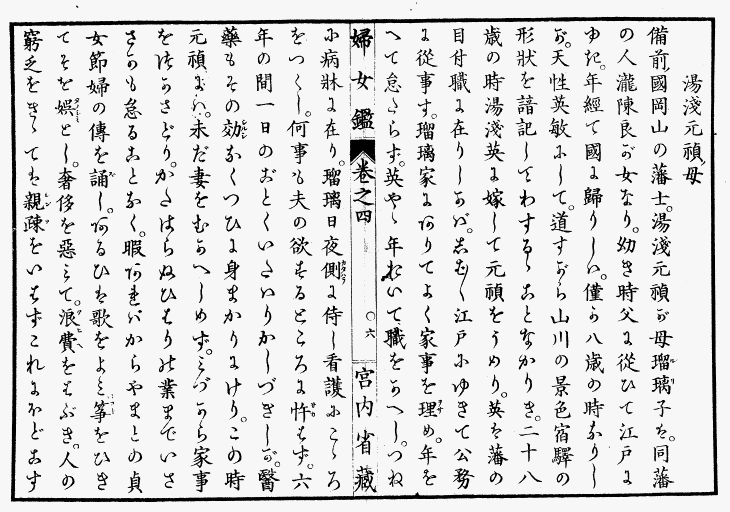 湯淺元禎母
備前國岡山の藩士。湯淺元禎が母瑠璃子は。同藩
の人瀧陳良が女なり。幼き時父に從ひて江戸に
ゆき。年經て國に歸りしハ。僅か八歳の時なりし
が。天性英敏にして。道すがら山川の景色宿驛の
形狀を諳記してわするゝことなかりき。二十八
歳の時湯淺英に嫁して元禎をうめり。英は藩の
目付職に在りしかば。しばしば江戸にゆきて公務
に從事す。瑠璃家にありてよく家事を理め。年を
へて怠たらず。英やゝ年おいて職をかへし。つね
に病牀に在り。瑠璃日夜側に侍し看護にこゝろ
をつくし。何事も夫の欲するところに忤はず。六
年の間一日のおとくいたはりかしづきしが。醫
藥もその効なくつひに身まかりにけり。この時
元禎まだ。未だ妻をむかへしめず。みづから家事
をはかさどり。かたはらぬひはり の業までいさ
さかも怠ることなく。暇あればからやまとの貞
女節婦の傳を誦し。あるひは歌をよみ箏をひき
てそを娯とし。奢侈を惡みて。浪費をはぶき。人の
窮乏をきゝては親疎をいはずこれにほどこす
婦女鑑 卷之四 〇六 宮内省藏